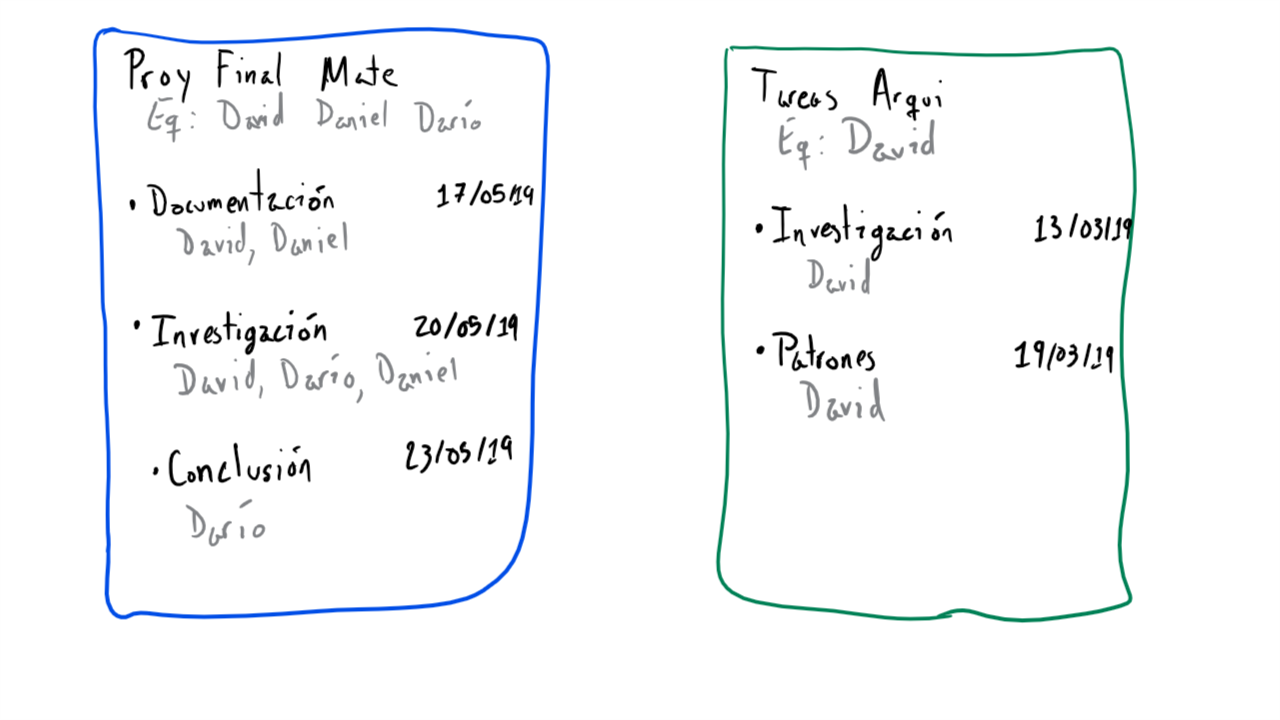 Proy Final Mate
Eq: David Daniel Darío
• Documentación 17/05/19
David, Daniel
• Investigación 20/05/19
David, Darío, Daniel
• Conclusión 23/05/19
Darío
Tareas Arqui
Eq: David
• Investigación 13/03/19
David
• Patrones 19/03/19
David